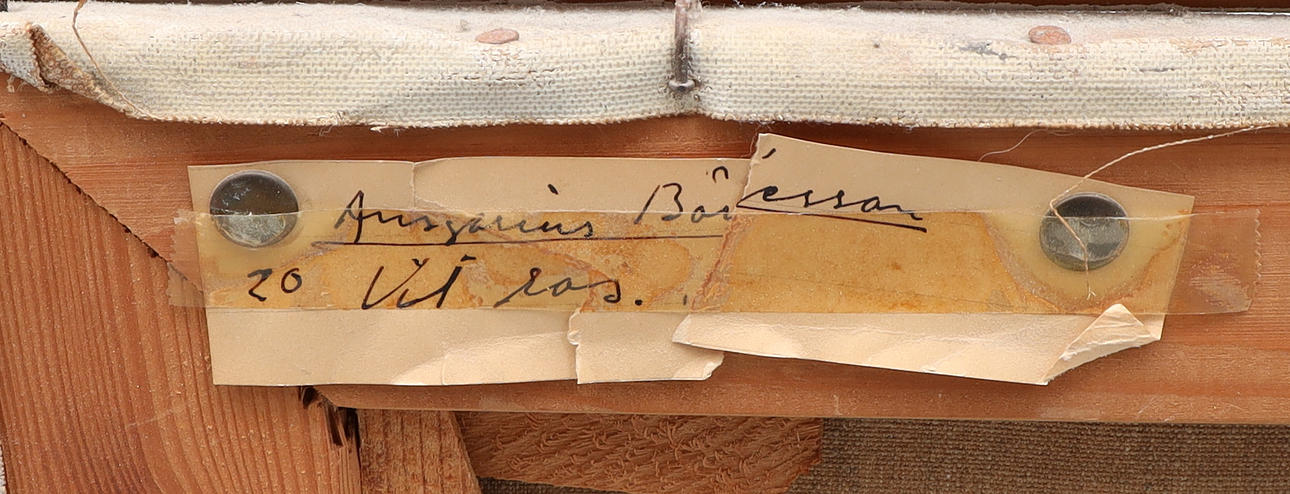 Ansgarius Börjesson
20 Vit ros.